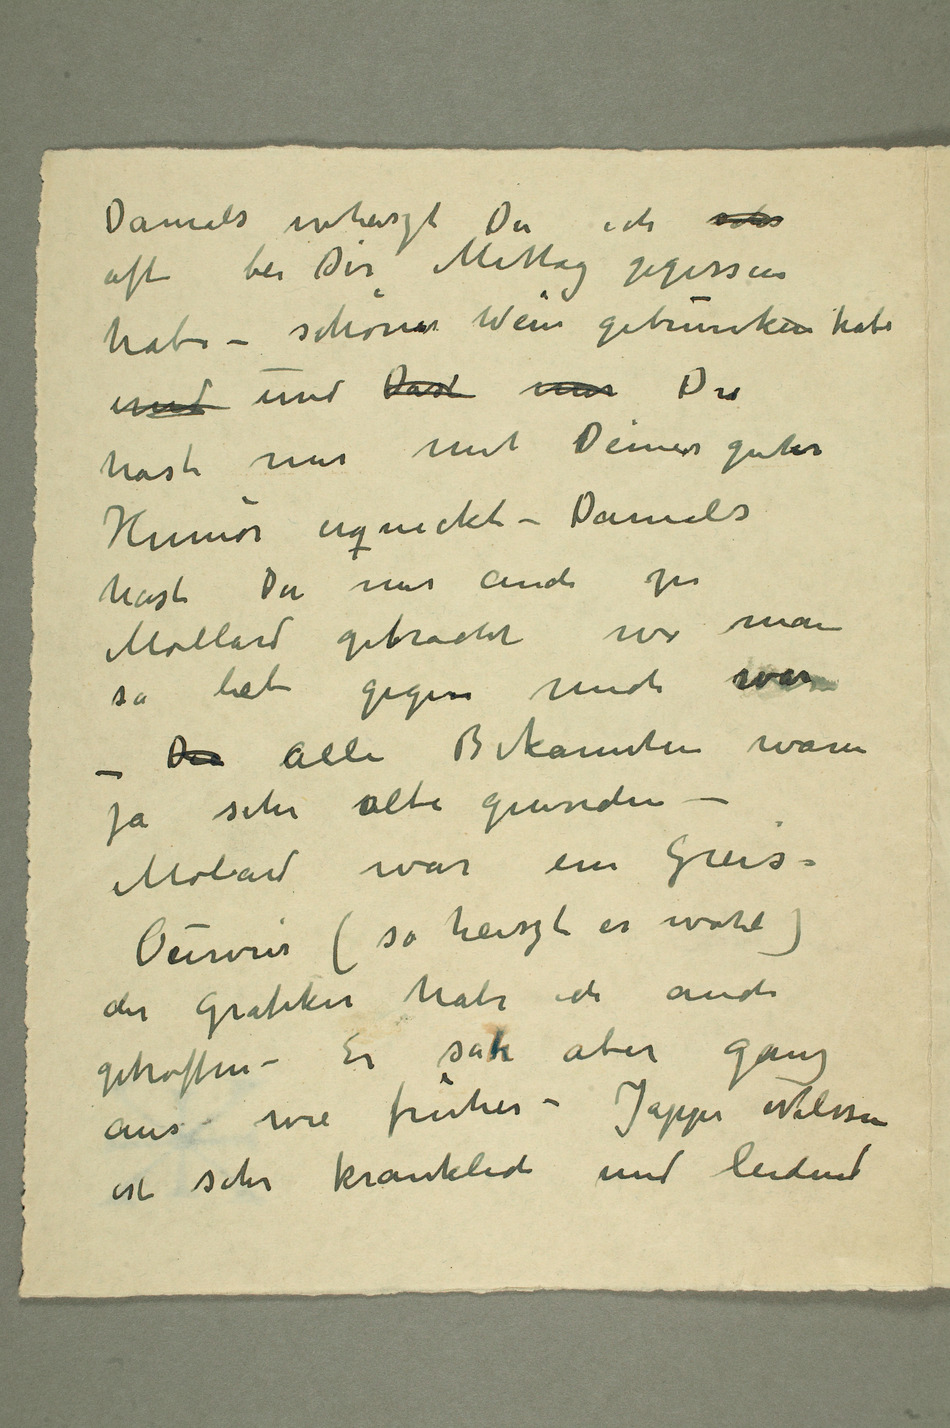 Damals weiszt Du ich
oft bei Dir Mittag gegessen
habe – schönen Wein getrunken habe
und und Dast mir Du
hast mir mit Deiner guter
Humör erquickt – Damals
hast Du mir auch zu
Mollard gebracht wo man
so lieb gegen mich war
– Die Alle Bekannten waren
ja sehr alte geworden –
Molard war ein Greis –
(so heiszt er wohl)
der Grafiker habe ich auch
getroffen – Er sah aber ganz
aus wie früher – Jappe Nilssen
ist sehr kranklich und leidend